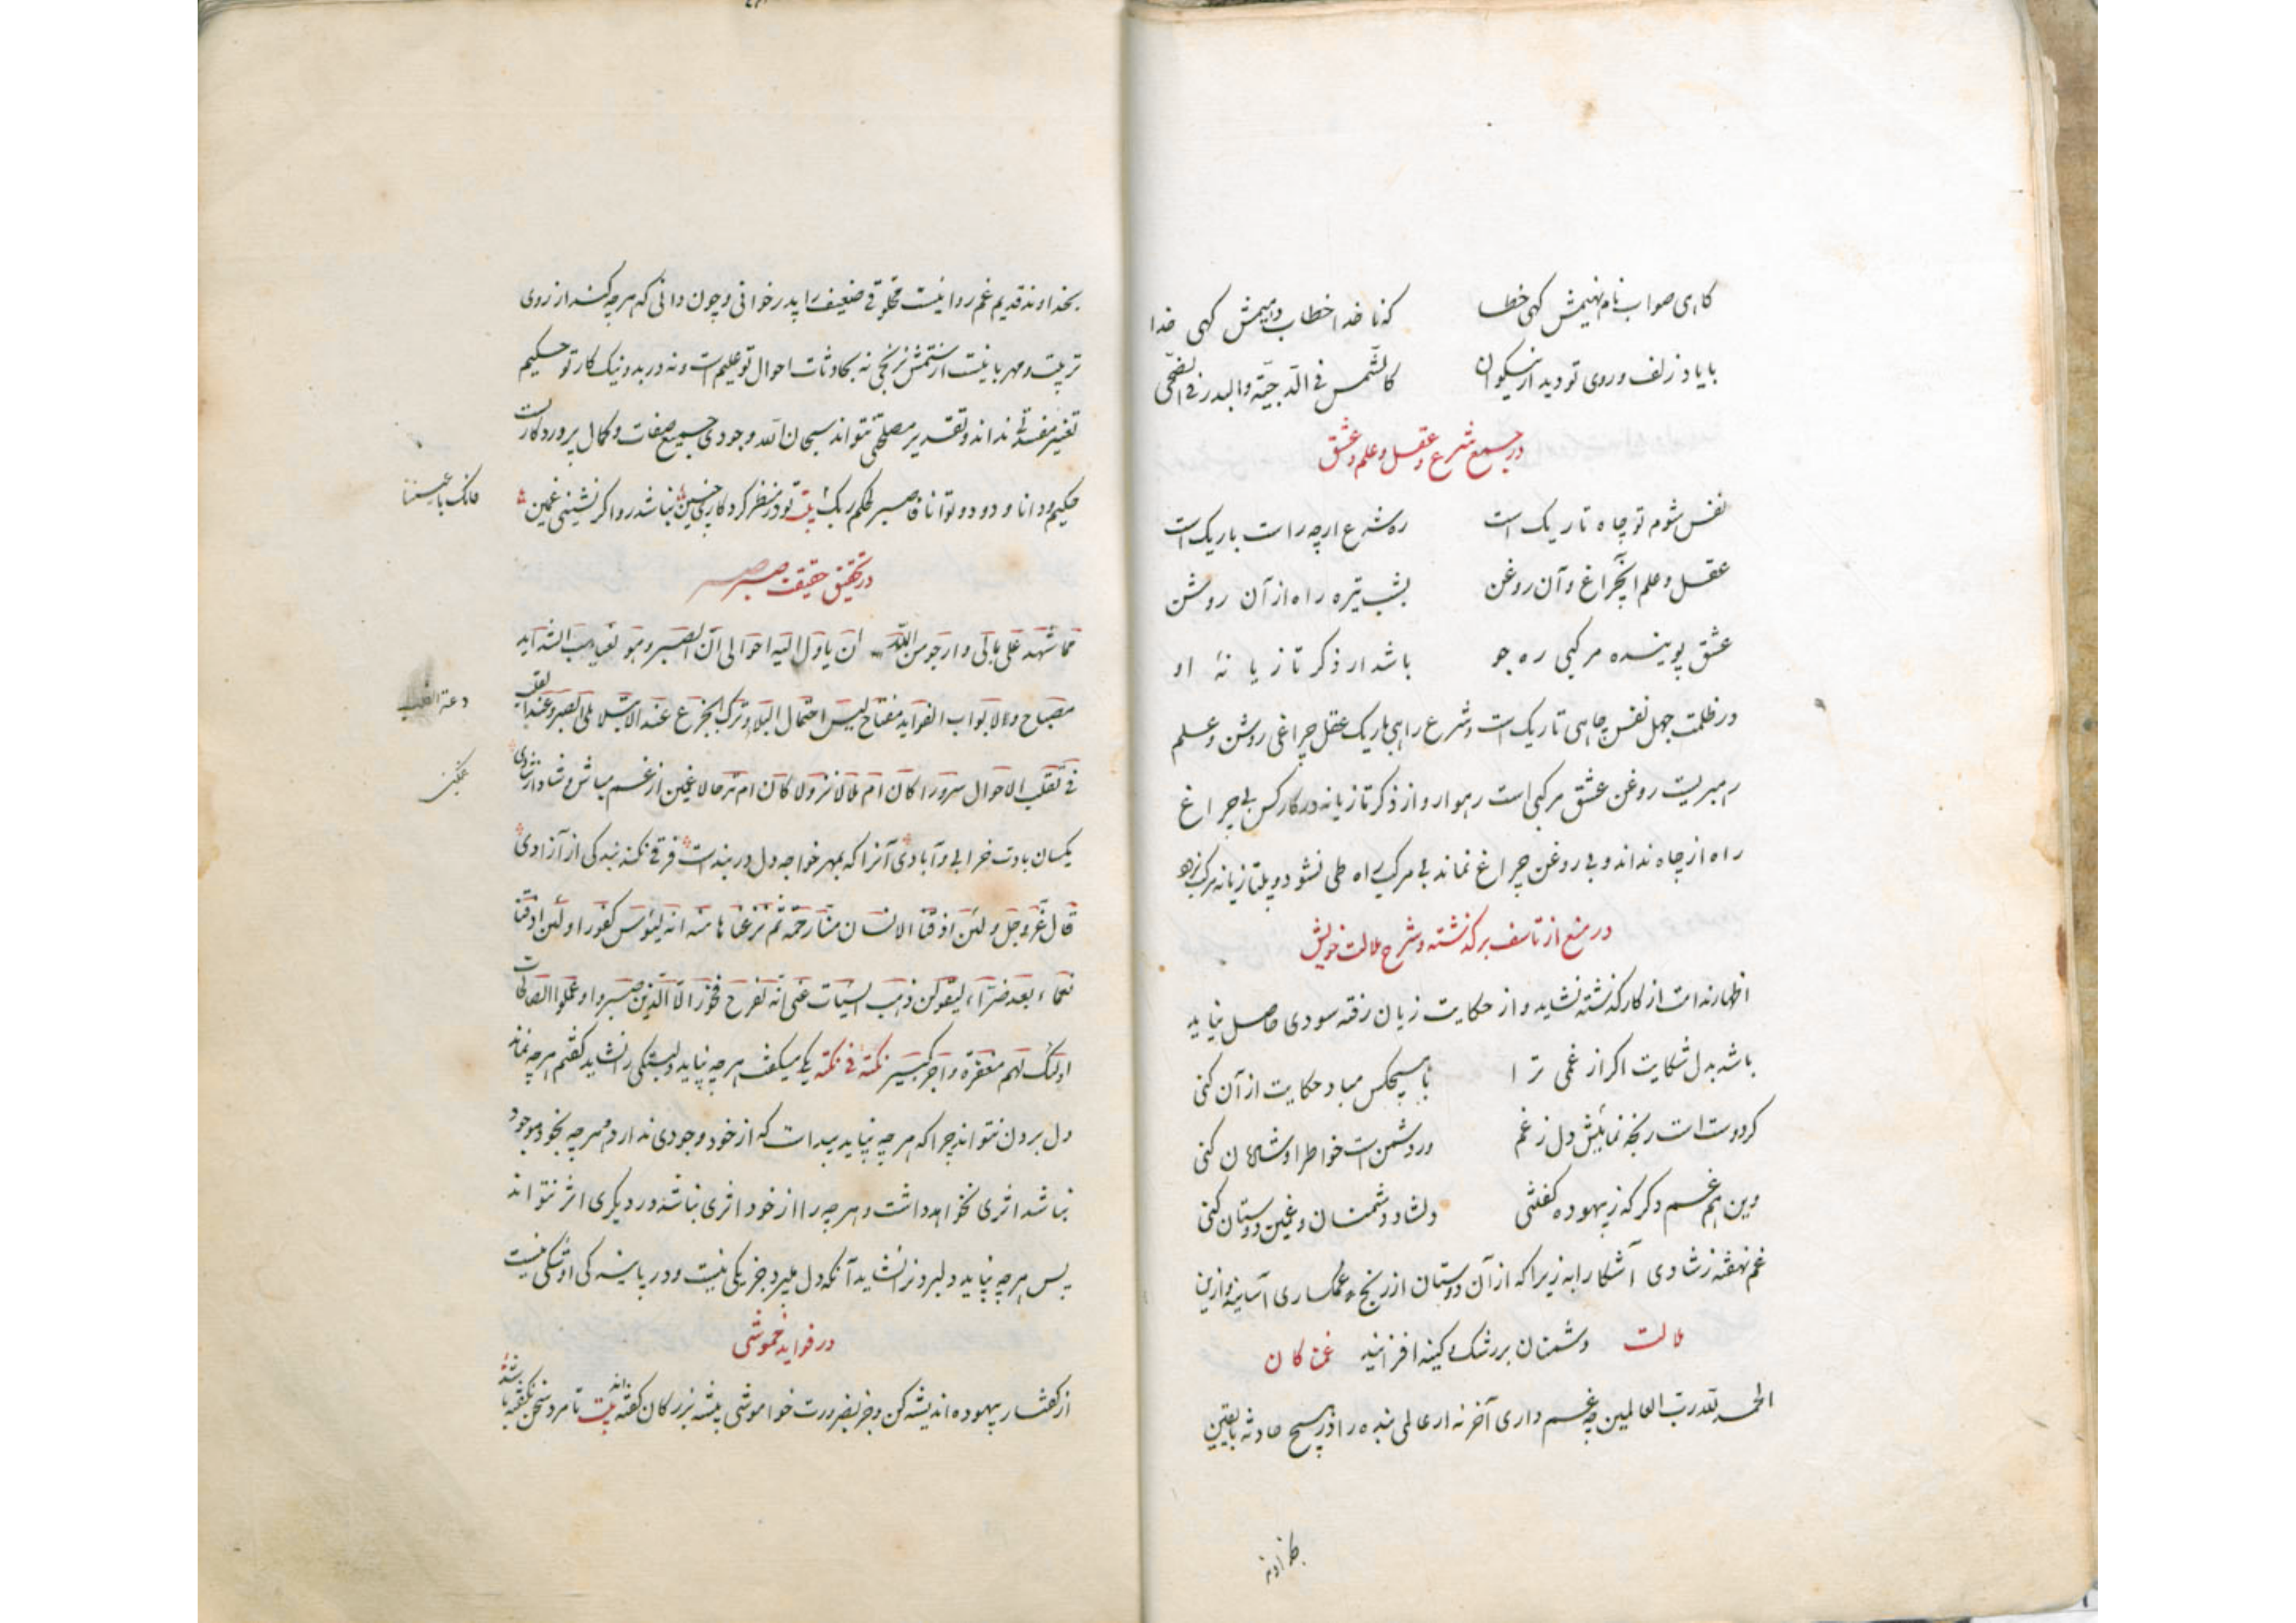 گاهی صواب نام نهیمش گهی خطا
که ناخدا خطاب دهیمش گهی خدا
با یاد زلف و روی تو دید از نیکوان
کالشمس فی الدجیة والبدر فی الضحی
در جمع شرع و عقل و علم و عشق
نفس شوم تو چاه تاریک است
ره شرع ارچه راست باریک است
عقل و علم این چراغ و آن روغن
بشب تیره راه از آن روشن
عشق پوینده مرکبی ره جو
باشد از ذکر تازیانهٔ او
در ظلمت جهل نفس چاهی تاریک است و شرع راهی باریک عقل چراغی روشن و علم
روغن عشق مرکبی است رهوار و از ذکر تازیانه در کار کس بی چراغ
راه از چاه نداند و بی روغن چراغ نماند بی مرکب راه طی نشود و بی تازیانه مرکب
در منع از تاسف بر گذشته و شرح ملالت خویش
اظهار ندامت از کار گذشته نشاید و از حکایت زیان رفته سودی حاصل نیاید
باشد بدل شکایت اگر از غمی ترا
با هیچکس مباد حکایت از آن کنی
گر دوست است رنجه نمائیش دل ز غم
ور دشمن است خواطر او شادمان کنی
وین هم غم دگر که ز بیهوده گفتنی
دلشاد دشمنان و غمین دوستان کنی
غم نهفته ز شادی آشکارا به زیرا که از آن دوستان از رنج غمگساری آسایند و ازین
ملالت دشمنان بر رشک و کینه افزایند غمناکان
الحمد لله رب العالمین چه غم داری آخر نه از عالمی بنده را در هیچ حادثه با یقین
بخداوند
بخداوند قدیم غم روا نیست مخلوقی ضعیف را پدر خوانی و چون دانی که هرچه کند از روی
تربیت و مهربانیست از ستمش نرنجی نه بحادثات احوال تو علیم است و نه در بد و نیک کار تو حکیم
تغییر مفسدتی نداند و تقدیر مصلحتی نتواند سبحان الله وجودی جمیع صفات و کمال پروردگارت
حکیم و دانا و ودود و توانا فاصبر لحکم ربک بیت تو در نظر کردگار چنین نباشد روا گر نشینی غمین
فانک باعیننا
در تحقیق حقیقت صبر
مما شهد علی بالی وارجو من الله ان یأول الیه احوالی ان الصبر وهو لغیاهب الشداید
مصباح ولابواب الفواید مفتاح لیس احتمال البلاء وترک الجزع عند الابتلاء بل الصبر وعند
دعة القلب
فی تقلب الاحوال سرورا کان ام ملالا نزولا کان ام ترحالا غمین از غم مباش و شاد از شادی
غمگین
یکسان بادت خرابی و آبادی آنرا که بمهر خواجه دل در بند است فرقی نکند بندگی از آزادی
قال عز وجل ولئن اذقنا الانسان منا رحمة ثم نزعناها منه انه لیئوس کفور اولئن اذقناه
نعماء بعد ضراء لیقولن ذهب السیئات عنی انه لفرح فخور الا الذین صبروا وعملوا الصالحات
اولئک لهم مغفرة واجر کبیر نکتة فی نکتة یکی میگفت هرچه نپاید دلبستگی را نشاید گفتم هرچه نماند
دل بردن نتواند چرا که هرچه نپاید پیداست که از خود وجودی ندارد و هرچه بخود موجود
نباشد اثری نخواهد داشت و هرچه را از خود اثری نباشد در دیگری اثر نتواند
پس هرچه نپاید دلبر نشاید آنکه دل میبرد جز یکی نیست و در پایندگی او شکی نیست
در فواید خموشی
از گفتار بیهوده اندیشه کن و جز بضرورت خواموشی پیشه بزرگان گفته‌اند بیت تا مرد سخن نگفته باشد